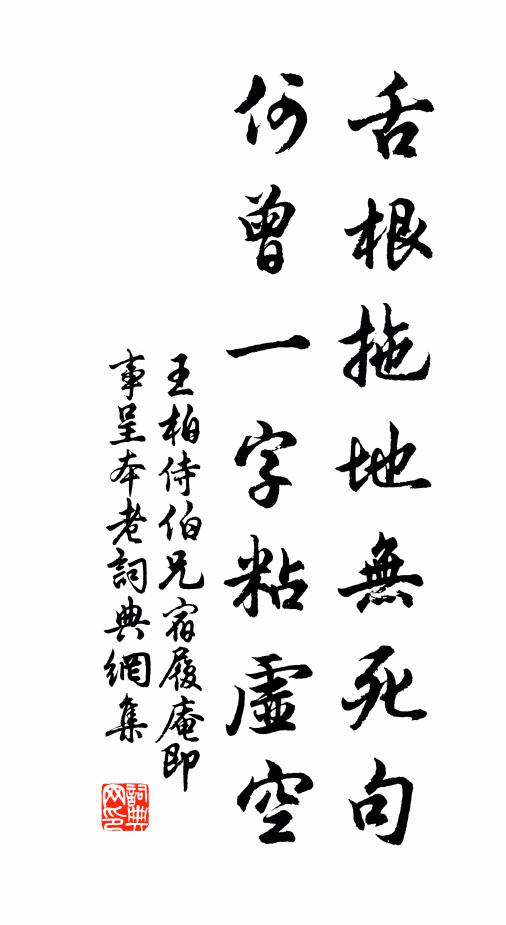 舌根拖地無死句
何曾一字粘虛空
王柏侍伯兄宿履庵即
事呈本老詞典網集
詞典网印